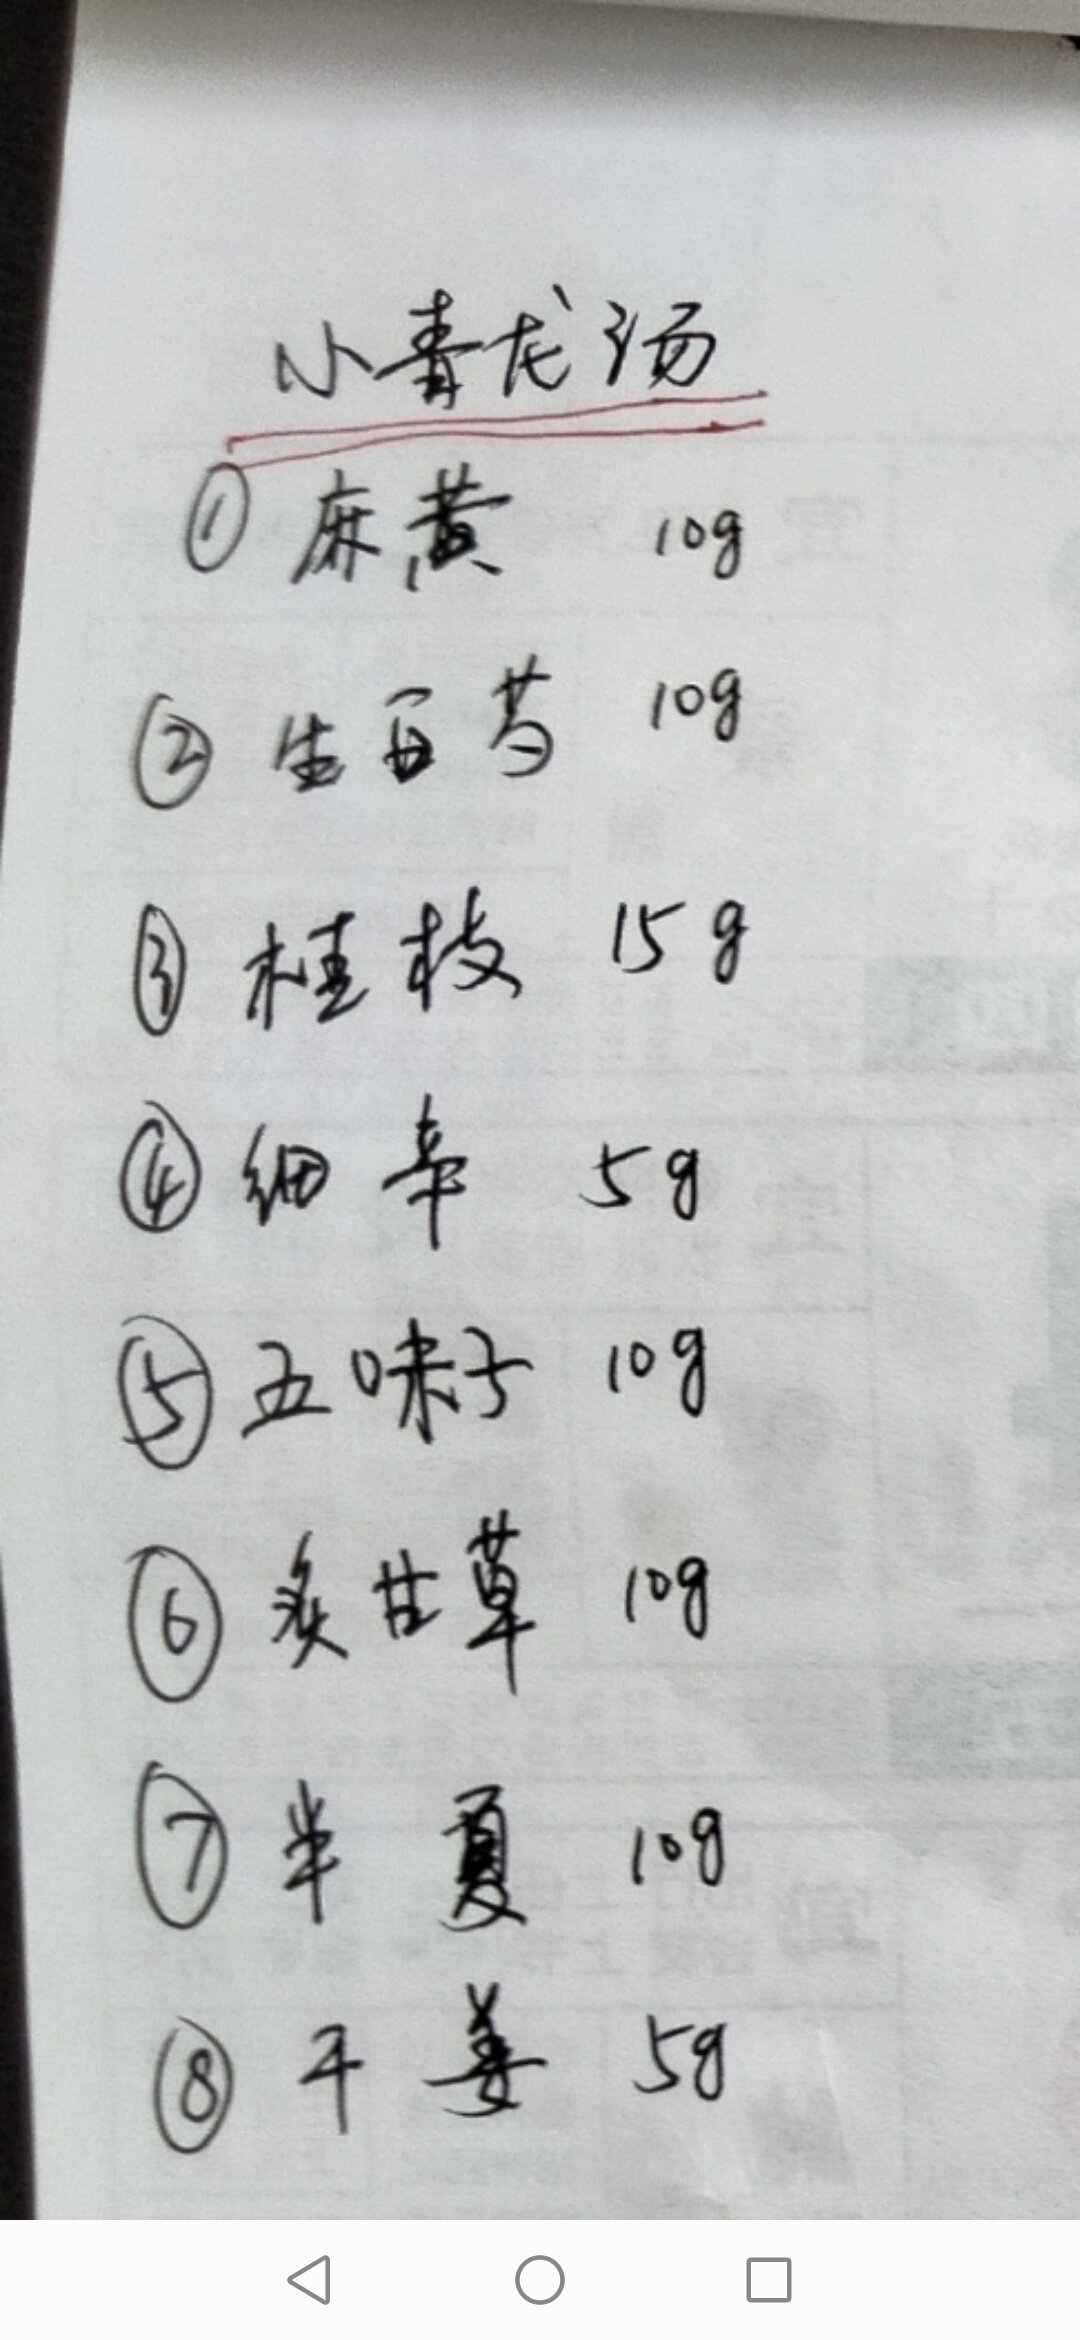 小青龙汤
① 麻黄 10g
② 生白芍 10g
③ 桂枝 15g
④ 细辛 5g
⑤ 五味子 10g
⑥ 炙甘草 10g
⑦ 半夏 10g
⑧ 干姜 5g